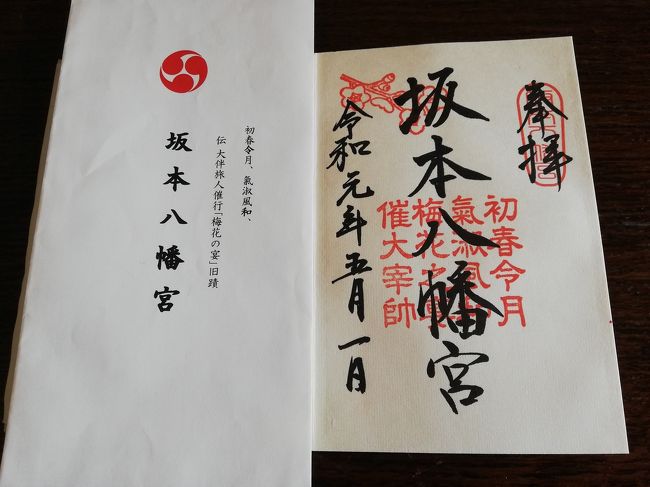 初春令月、氣淑風和、
伝 大伴旅人催行「梅花の宴」旧蹟
坂本八幡宮
奉拝
坂本八幡宮
令和元年五月一日
初春令月
氣淑風
梅花
催大宰帥